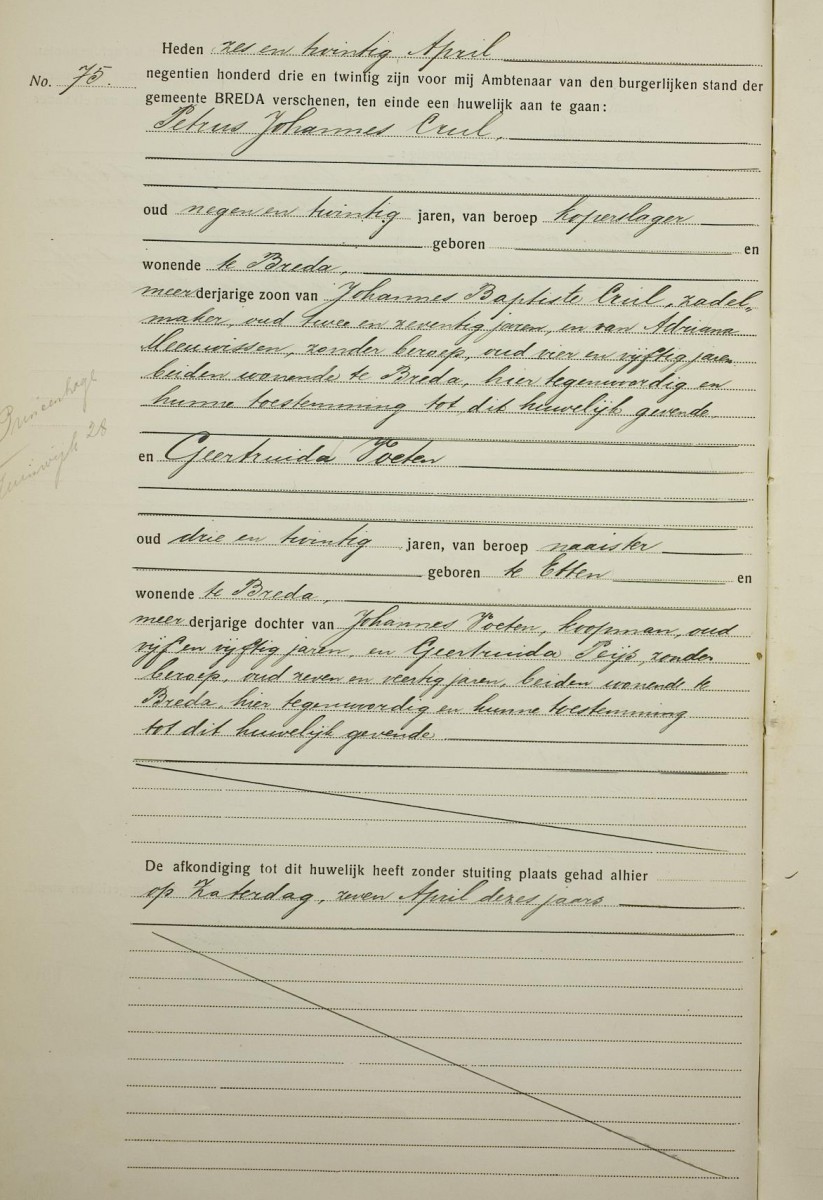 Heden zes en twintig April
No. 75.
negentien honderd drie en twintig zijn voor mij Ambtenaar van den burgerlijken stand der
gemeente BREDA verschenen, ten einde een huwelijk aan te gaan:
Petrus Johannes Crul,
oud negen en twintig jaren, van beroep koperslager
geboren en
wonende te Breda,
meerderjarige zoon van Johannes Baptiste Crul, zadel„
maker, oud twee en zeventig jaren, en van Adriana
Meeuwissen, zonder beroep, oud vier en vijftig jaren
beiden wonende te Breda, hier tegenwoordig en
hunne toestemming tot dit huwelijk gevende
Princenhage
28
en Geertruida Voeten
oud drie en twintig jaren, van beroep naaister
geboren te Etten en
wonende te Breda,
meerderjarige dochter van Johannes Voeten, koopman, oud
vijf en vijftig jaren, en Geertruida Peijs, zonder
beroep, oud zeven en veertig jaren, beiden wonende te
Breda, hier tegenwoordig en hunne toestemming
tot dit huwelijk gevende
De afkondiging tot dit huwelijk heeft zonder stuiting plaats gehad alhier
op Zaterdag, zeven April dezes jaars